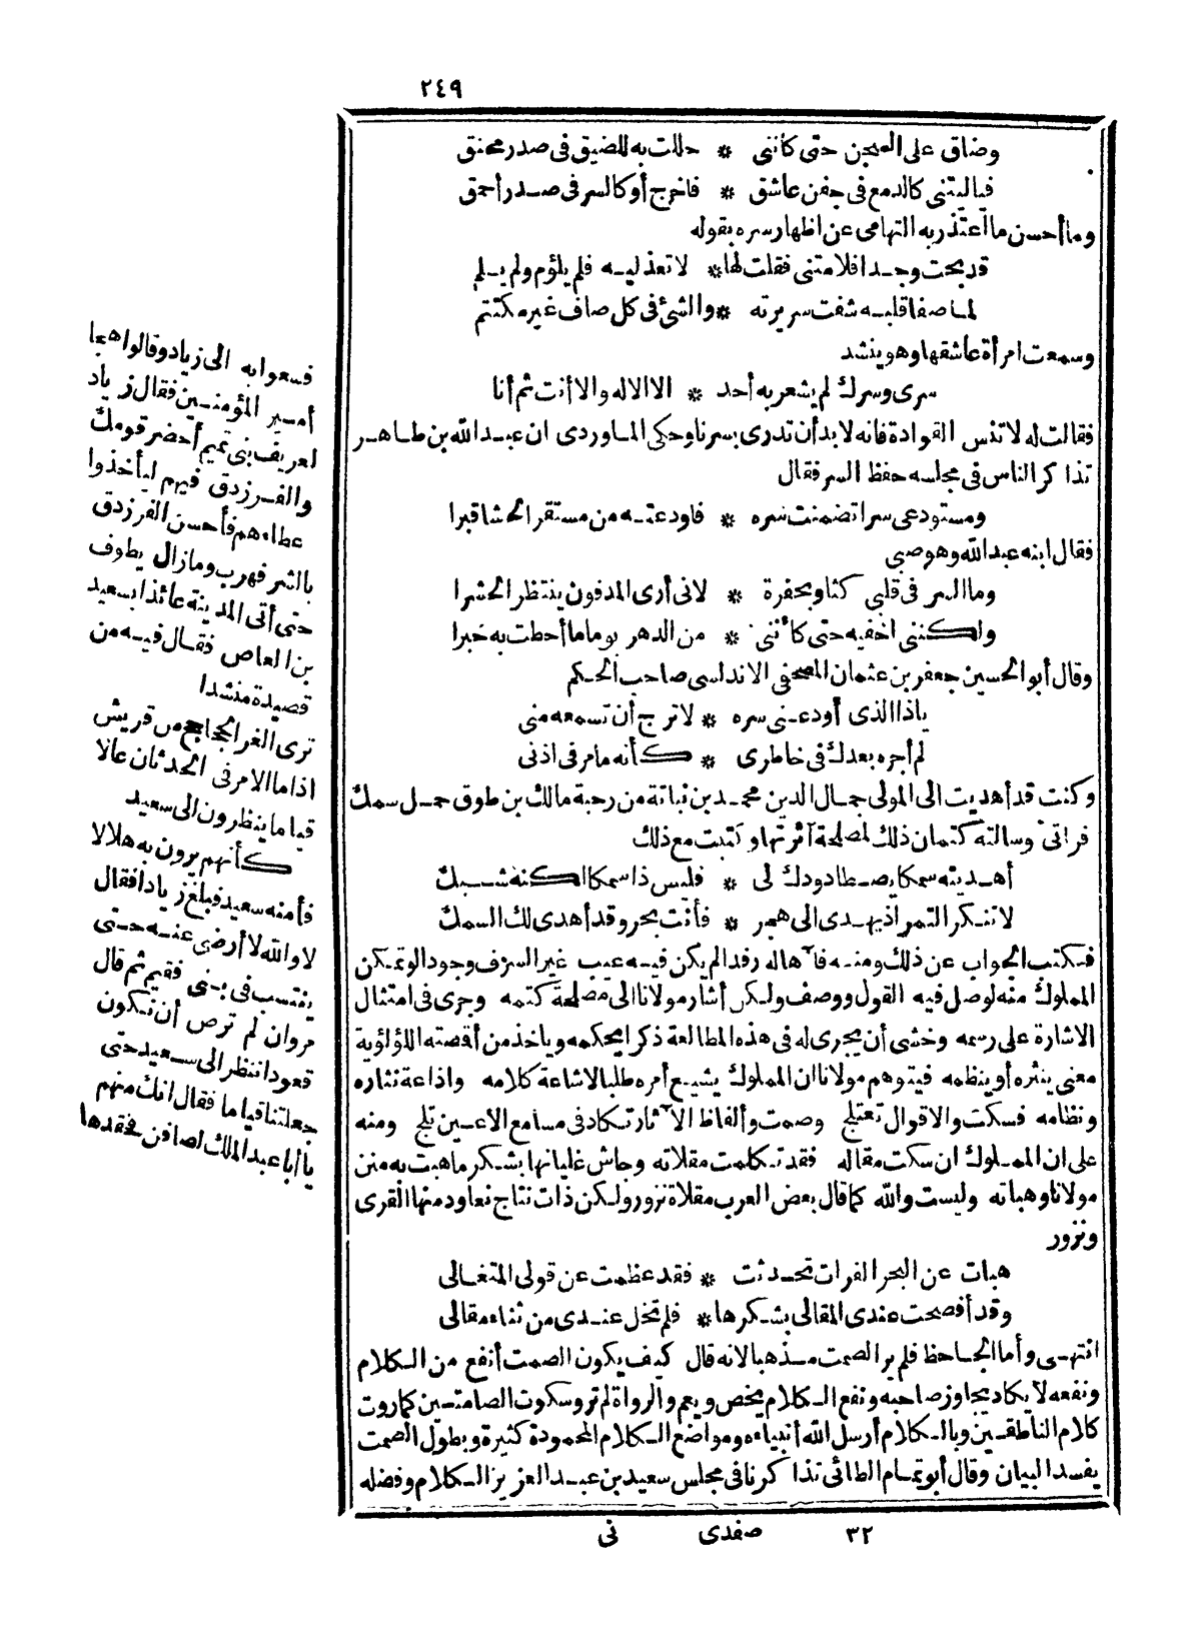 ٢٤٩
وضاق على السجن حتى كأننى * حللت به للضيق فى صدر محنق
فياليتنى كالدمع فى جفن عاشق * فاخرج أو كالسر فى صدر أحمق
وما أحسن ما اعتذر به التهامى عن اظهار سره بقوله
قد بحت وجدا فلامتنى فقلت لها * لا تعذليه فلم يلؤم ولم يلم
لما صفا قلبه شفت سريرته * والشئ فى كل صاف غير مكتتم
وسمعت امرأة عاشقها وهو ينشد
سرى وسرك لم يشعر به أحد * الا الاله والا أنت ثم أنا
فقالت له لا تنس القوادة فانه لا بد أن تدرى بسرنا وحكى الماوردى ان عبد الله بن طاهر
تذاكر الناس فى مجلسه حفظ السر فقال
ومستودعى سرا تضمنت سره * فاودعته من مستقر الحشا قبرا
فقال ابنه عبد الله وهو صبى
وما السر فى قلبى كثاو بحفرة * لانى أرى المدفون ينتظر الحشرا
ولكننى اخفيه حتى كأننى * من الدهر يوما ما أحطت به خبرا
وقال أبو الحسين جعفر بن عثمان المصحفى الاندلسى صاحب الحكم
ياذا الذى أودعنى سره * لا ترج أن تسمعه منى
لم أجره بعدك فى خاطرى * كأنه مامر فى اذنى
وكنت قد أهديت الى المولى جمال الدين محمد بن نباتة من رحبة مالك بن طوق حمل سمك
فراتى وسالته كتمان ذلك لمصلحة آثرتها وكتبت مع ذلك
أهديته سمكا يصطاد ودك لى * فليس ذا سمكا لكنه شبك
لا تنكر التمر اذ يهدى الى هجر * فأنت بحر وقد أهدى لك السمك
فكتب الجواب عن ذلك ومنه فآهاله رفد الم يكن فيه عيب غير السرف وجود الو تمكن
المملوك منه لوصل فيه القول ووصف ولكن أشار مولانا الى مصلحة كتمه وجرى فى امتثال
الاشارة على رسمه وخشى أن يجرى له فى هذه المطالعة ذكر ايحكمه وياخذ من أقصته اللؤلؤية
معنى ينثره أو ينظمه فيتوهم مولانا ان المملوك يشيع أمره طلبا لاشاعة كلامه واذاعة نثاره
ونظامه فسكت والاقوال تعتلج وصمت وألفاظ الآثار تكاد فى مسامع الاعين تلج ومنه
على ان المملوك ان سكت مقاله فقد تكلمت مقلاته وجاش غليانها بشكر ما هبت به منن
مولانا وهباته وليست والله كما قال بعض العرب مقلاة نزور ولكن ذات نتاج نعاود منها القرى
ونزور
هبات عن البحر الفرات تحدثت * فقد عظمت عن قولى المتغالى
وقد أفصحت عندى المقالى بشكرها * فلم تخل عندى من ثناء مقالى
انتهى وأما الجاحظ فلم ير الصمت مذهبا لانه قال كيف يكون الصمت أنفع من الكلام
ونفعه لا يكاد يجاوز صاحبه ونفع الكلام يخص ويعم والرواة لم ترو سكوت الصامتين كما روت
كلام الناطقين وبالكلام أرسل الله أنبياءه ومواضع الكلام المحمودة كثيرة وبطول الصمت
يفسد البيان وقال أبو تمام الطائى تذاكرنا فى مجلس سعيد بن عبد العزيز الكلام وفضله
٣٢ صفدى نى
فسعوا به الى زياد وقالوا هجا
أمير المؤمنين فقال زياد
لعريف بنى تميم أحضر قومك
والفرزدق فيهم ليأخذوا
عطاءهم فأحسن الفرزدق
بالشر فهرب وما زال يطوف
حتى أتى المدينة عائذا بسعيد
بن العاص فقال فيه من
قصيدة منشدا
ترى الغر الجحاجح من قريش
اذا ما الامر فى الحدثان عالا
قياما ينظرون الى سعيد
كأنهم يرون به هلالا
فأمنه سعيد فبلغ زيادا فقال
لا والله لا أرضى عنه حتى
ينتسب فى بنى فقيم ثم قال
مروان لم ترض أن نكون
قعودا ننظر الى سعيد حتى
جعلتنا قياما فقال انك منهم
يا أبا عبد الملك لصافن فحقدها